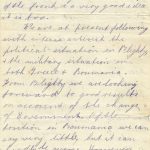 of the french, a very good idea
it is too.
We are at present following
with interest interest the
political situation in Blighty
& the military situation in
both Greece & Roumania.
From Blighty we are looking
forward to good results
on account of the change
of Government & of the
position in Roumania we can
say very little, but it can